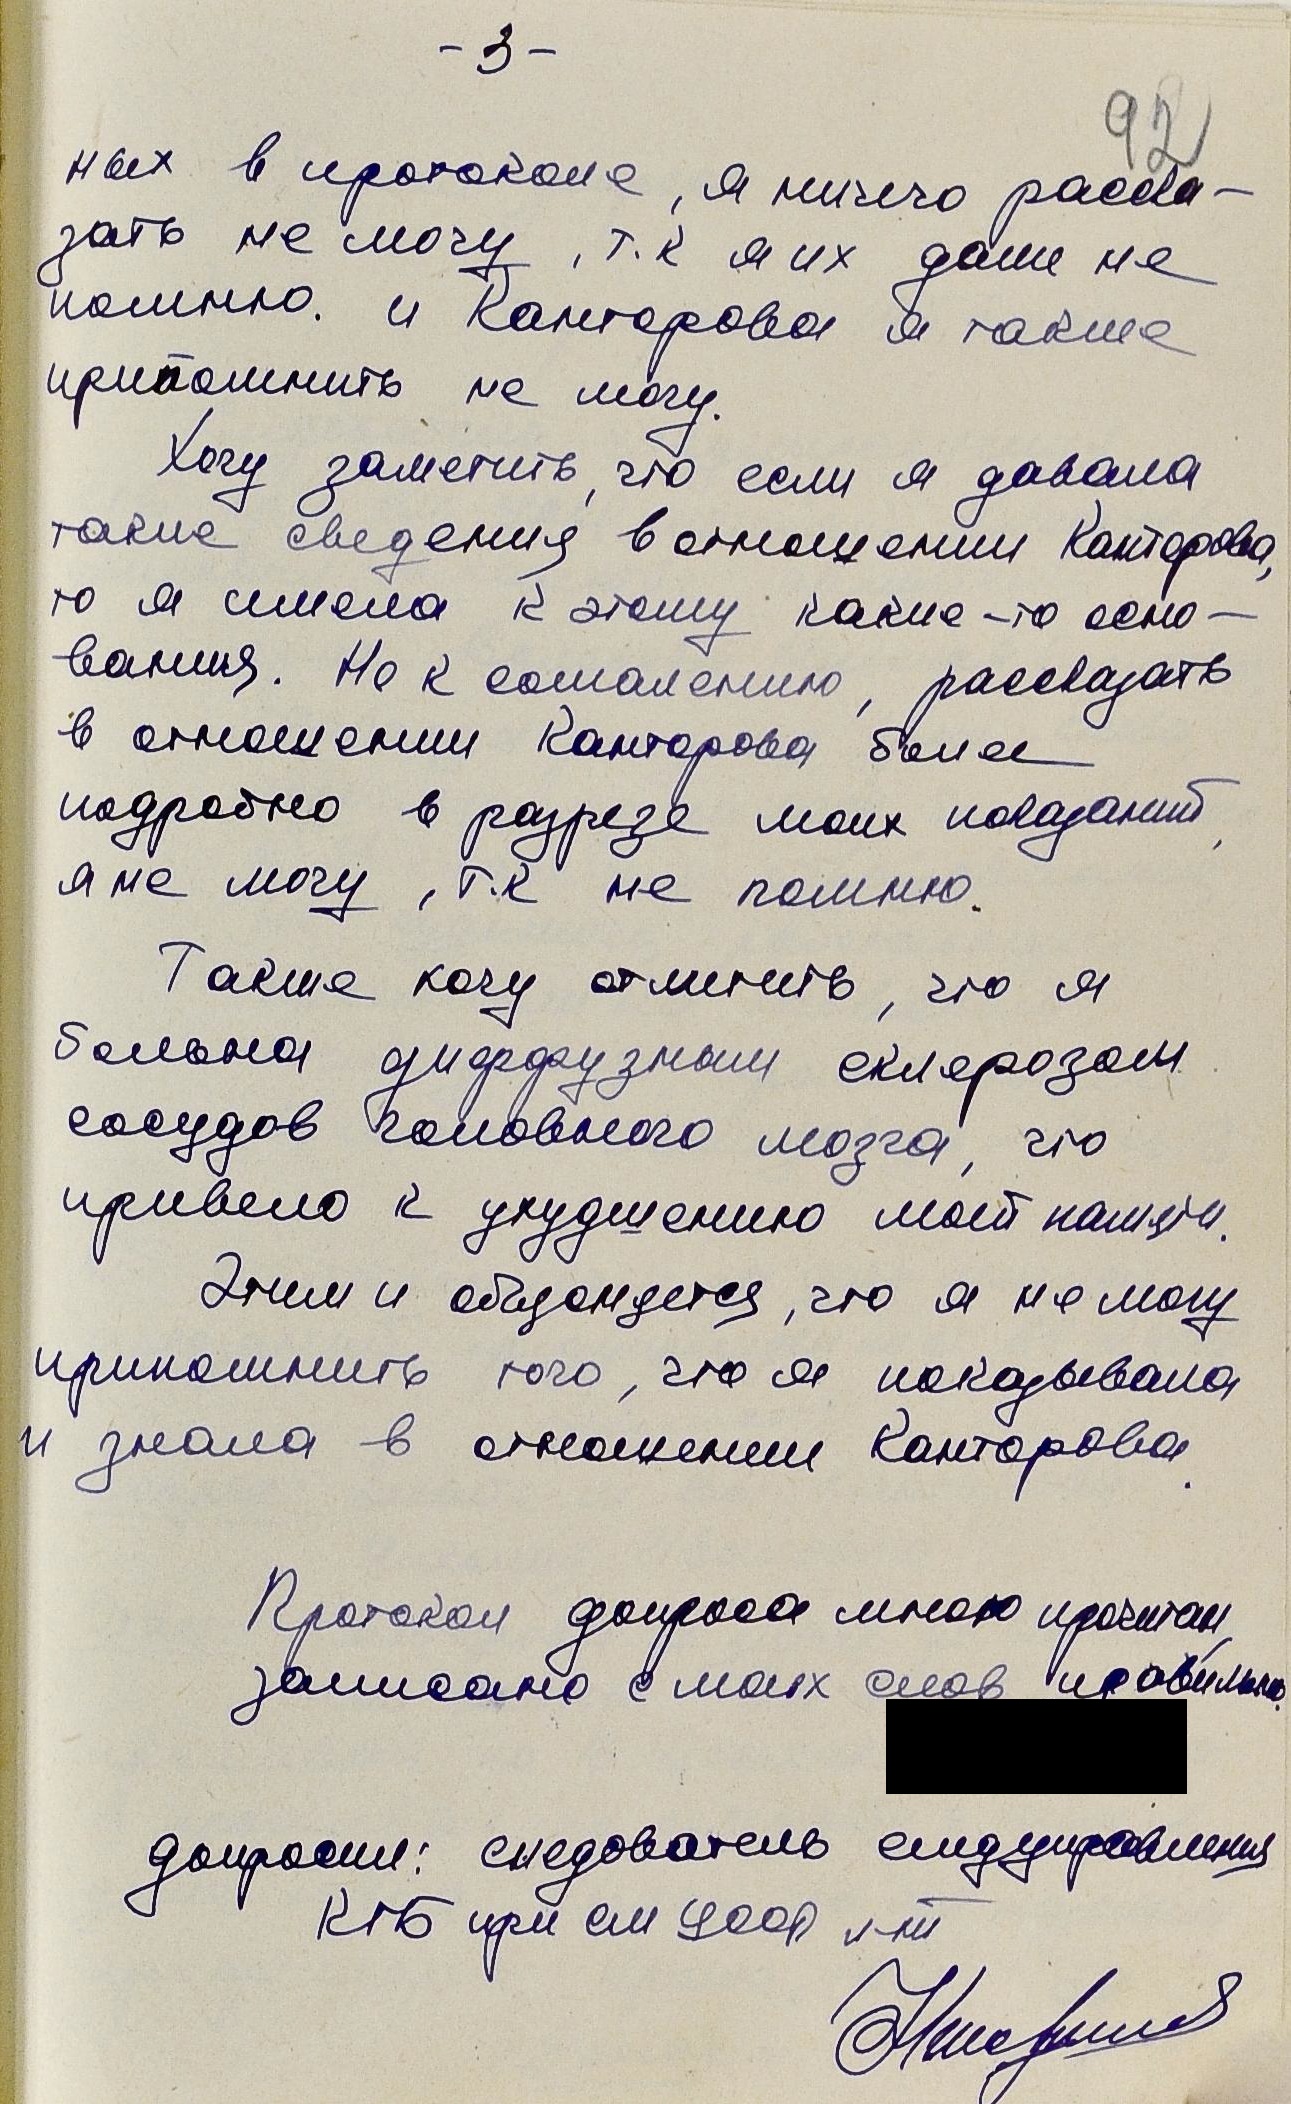 - 3 -
92
ных в протоколе, я ничего расска-
зать не могу, т.к я их даже не
помню. и Канторова я также
припомнить не могу.
Хочу заметить, что если я давала
такие сведения в отношении Канторова,
то я имела к этому какие-то осно-
вания. Но к сожалению, рассказать
в отношении Канторова более
подробно в разрезе моих показаний,
я не могу, т.к не помню.
Также хочу отметить, что я
больна диффузным склерозом
сосудов головного мозга, что
привело к ухудшению моей памяти.
Этим и объясняется, что я не могу
припомнить того, что я показывала
и знала в отношении Канторова.
Протокол допроса мною прочитан,
записано с моих слов правильно.
Допросил: следователь следуправления
КГБ при СМ УССР л-т